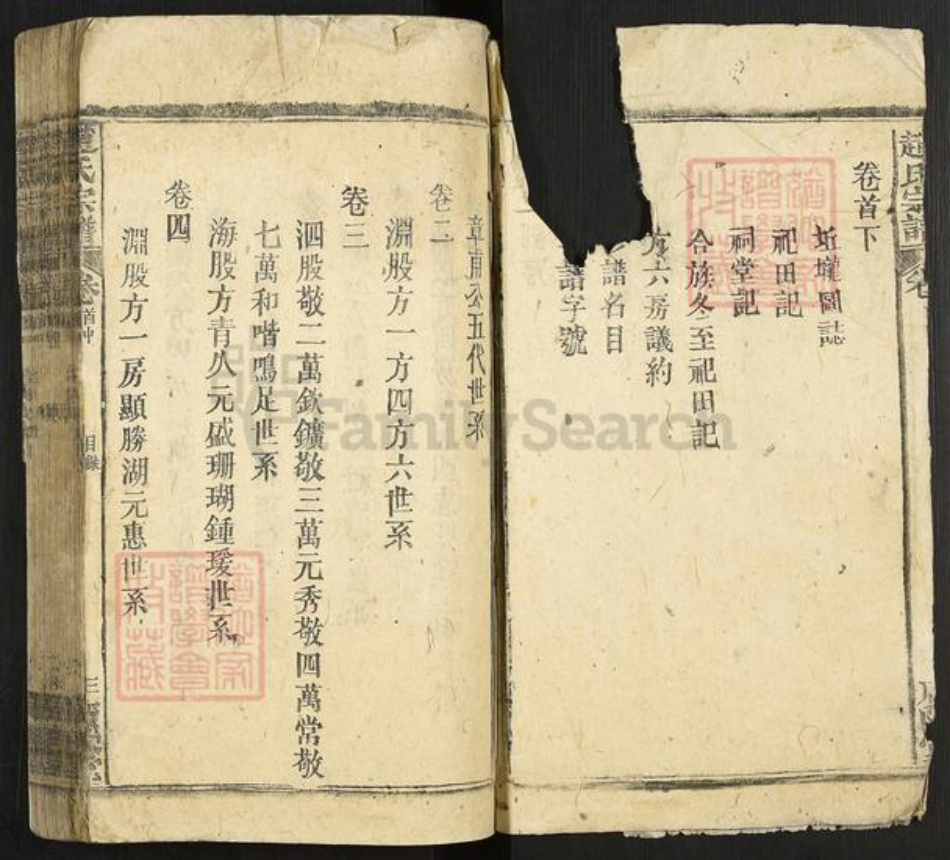 趙氏宗譜
卷首下
坵壠圖誌
祀田記
祠堂記
合族冬至祀田記
六房議約
譜名目
譜字號
章甫公五代世系
卷二
淵股方一方四方六世系
卷三
泗股敬二萬欽鑛敬三萬元秀敬四萬常敬
七萬和喈鳴足世系
海股方青久元盛珊瑚鍾瑗世系
卷四
淵股方一房顯勝湖元惠世系
氏宗譜
卷首中
目錄
三
譜學會
收藏
FamilySearch